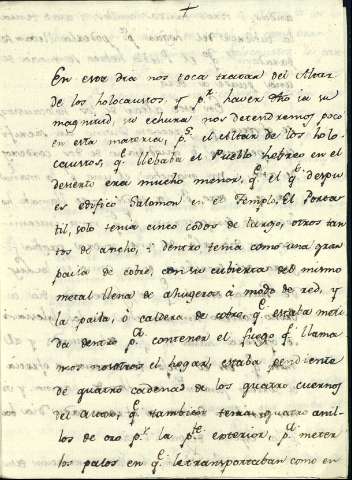 +
En este dia nos toca tratar del Altar
de los holocaustos, y pr. haver dho ia su
magnitud, su echura nos detendremos poco
en esta materia, ps. el Altar de los holo-
caustos, qe. llebaba el Pueblo hebreo en el
desierto era mucho menor, qe. el qe. despu-
es edificó Salomon en el Templo. El Porta-
til, solo tenia cinco codos de largo, otros tan-
tos de ancho, i dentro tenia como una gran
paila de cobre, con su cubierta del mismo
metal llena de ahugeros à modo de red, y
la paila, ò caldera de cobre, qe. estaba meti-
da dentro pa. contener el fuego qe. llama-
mos nosotros el hogar, estaba pendiente
de quatro cadenas de los quatro cuernos
del altar, qe. tambien tenia quatro anil-
los de oro pr. la pte. exterior, pa. meter
los palos en qe. le transportaban como en